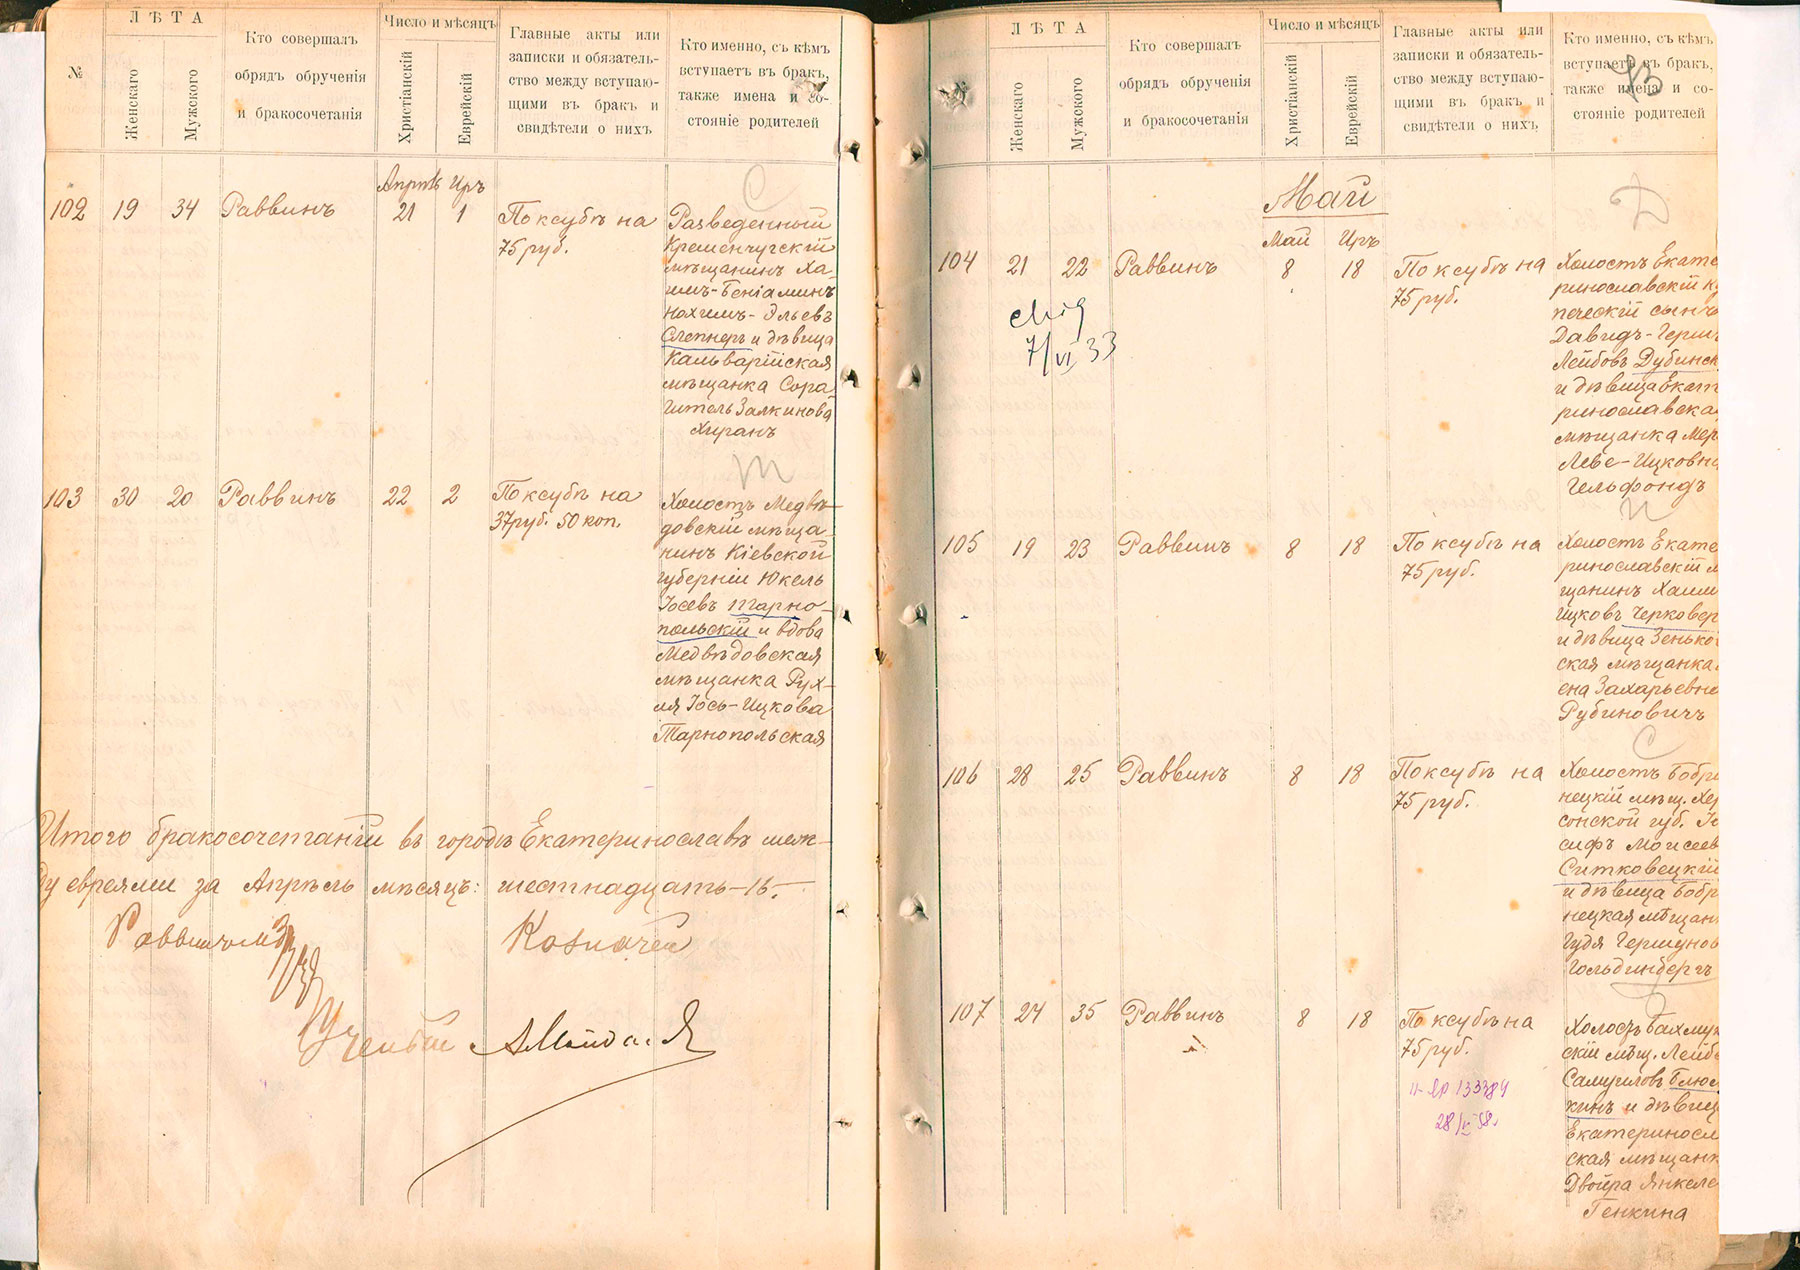 №
ЛѢТА
Женскаго
Мужского
Кто совершалъ
обрядъ обрученія
и бракосочетанія
Число и мѣсяцъ
Христіанскій
Еврейскій
Главные акты или
записки и обязатель-
ство между вступаю-
щими въ бракъ и
свидѣтели о нихъ
Кто именно, съ кѣмъ
вступаетъ въ бракъ,
также имена и со-
стояніе родителей
С
Апрѣль Иръ
102 19 34 Раввинъ 21 1
По ксубѣ на
75 руб.
Разведенный
Кременчугскій
мѣщанинъ Ха-
имъ-Беніаминъ
Нохимъ-Эльевъ
Слепнеръ и дѣвица
Кальварійская
мѣщанка Сора
Гитель Залкинова
Хиранъ
Т
103 30 20 Раввинъ 22 2
По ксубѣ на
37 руб. 50 коп.
Холостъ Медвѣ-
довскій мѣща-
нинъ Кіевской
губерніи Юкель
Іосевъ Тарно-
польскій и вдова
Медвѣдовская
мѣщанка Рух-
ля Іось-Ицкова
Тарнопольская
Итого бракосочетаній въ городѣ Екатеринославѣ меж-
ду евреями за Апрѣль мѣсяцъ: шестнадцать-16.
Раввинъ
Казначей
Ученый
ЛѢТА
Женскаго
Мужского
Кто совершалъ
обрядъ обрученія
и бракосочетанія
Число и мѣсяцъ
Христіанскій
Еврейскій
Главные акты или
записки и обязатель-
ство между вступаю-
щими въ бракъ и
свидѣтели о нихъ
Кто именно, съ кѣмъ
вступаетъ въ бракъ,
также имена и со-
стояніе родителей
Май
Д
Май Иръ
104 21 22 Раввинъ 8 18
По ксубѣ на
75 руб.
7/VI 33
Холостъ Екате
ринославскій ку
печескій сынъ
Давидъ-Герш
Лейбовъ Дубинск
и дѣвица Екат
ринославска
мѣщанка Мер
Леве-Ицковна
Гельфондъ
Ч
105 19 23 Раввинъ 8 18
По ксубѣ на
75 руб.
Холостъ Екате
ринославскій м
щанинъ Хаим
Ицковъ Черковер
и дѣвица Зенько
ская мѣщанка
ена Захарьевна
Рубиновичъ
С
106 28 25 Раввинъ 8 18
По ксубѣ на
75 руб.
Холостъ Бобри
нецкій мѣщ. Хер
сонской губ. Іо
сифъ Моисеев
Ситковецкій
и дѣвица Бобр
нецкая мѣщан
Гудя Гершунов
Гольдинбергъ
Б
107 24 35 Раввинъ 8 18
По ксубѣ на
75 руб.
28/V 58.
Холостъ Бахму
скій мѣщ. Лейб
Самуиловъ Блюм
кинъ и дѣвиц
Екатериносл
ская мѣщанк
Двойра Янкеле
Генкина